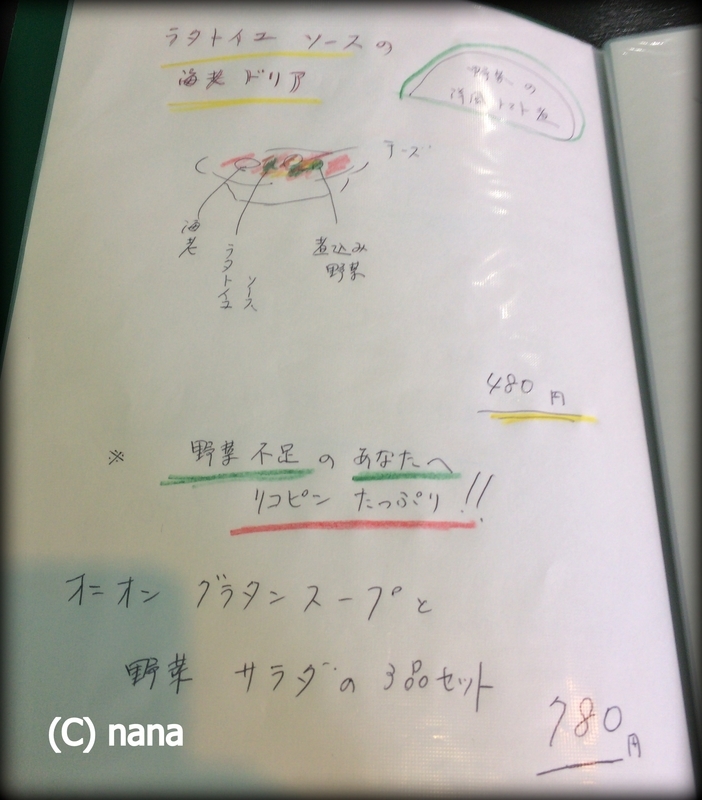 ラタトイユ ソースの
海老 ドリア
野菜 の
洋風 トマト煮
チーズ
海老
ラタトイユ
ソース
煮込み
野菜
480 円
※ 野菜 不足 の あなたへ
リコピン たっぷり!!
オニオン グラタン スープと
野菜 サラダ の 3品セット
780円
(C) nana